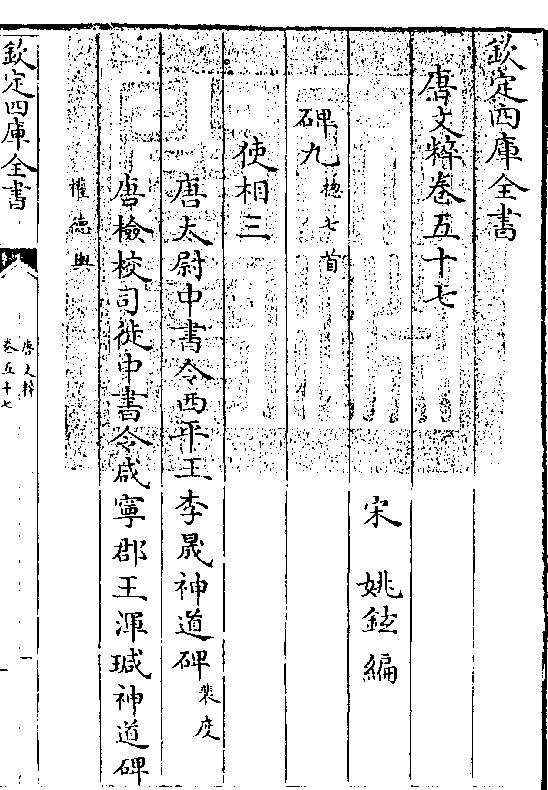 欽定四庫全書
唐文粹卷五十七
宋 姚鉉 編
碑九 總七首
使相三
唐太尉中書令西平王李晟神道碑 裴度
唐檢校司徒中書令咸寧郡王渾瑊神道碑
權德輿
欽定四庫全書
唐文粹
卷五十七
一